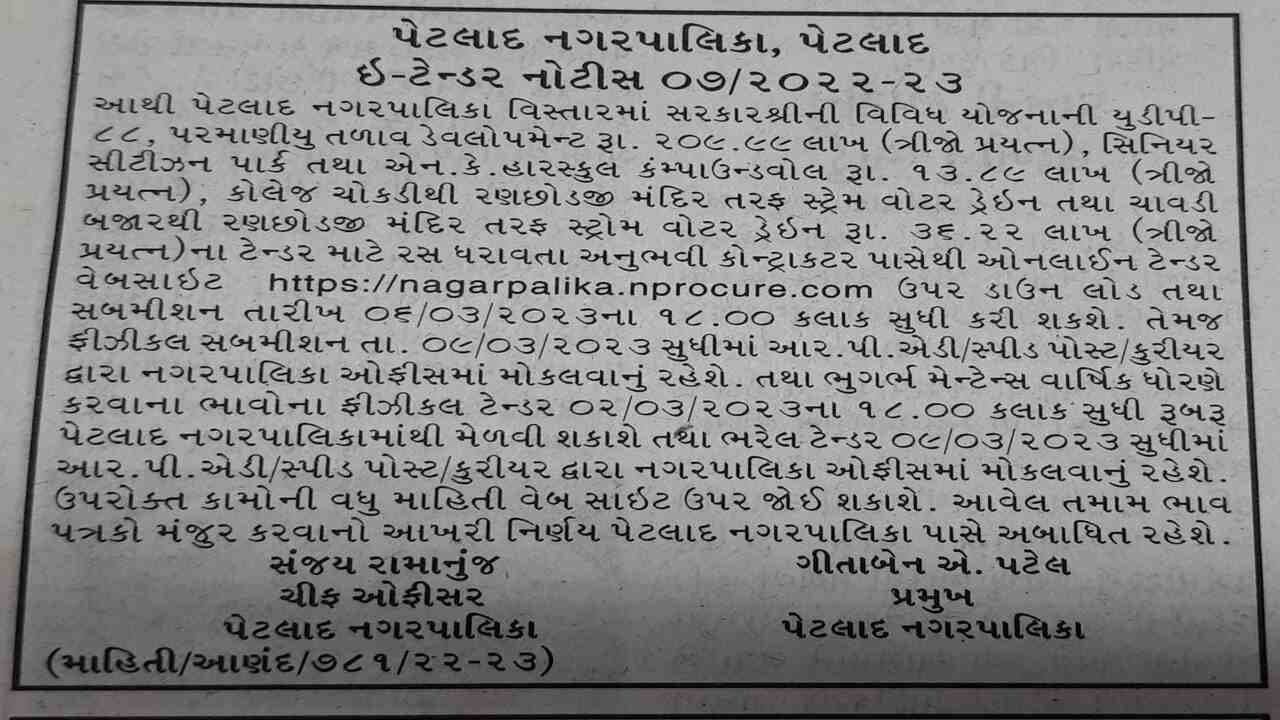 પેટલાદ નગરપાલિકા, પેટલાદ
ઇ-ટેન્ડર નોટીસ ૦૭/૨૦૨૨-૨૩
આથી પેટલાદ નગરપાલિકા વિસ્તારમાં સરકારશ્રીની વિવિધ યોજનાની યુડીપી-
૮૮, પરમાણીયુ તળાવ ડેવલોપમેન્ટ રૂા. ૨૦૯.૯૯ લાખ (ત્રીજો પ્રયત્ન), સિનિયર
સીટીઝન પાર્ક તથા એન.કે.હાઇસ્કુલ કંમ્પાઉન્ડવોલ રૂા. ૧૩.૮૯ લાખ (ત્રીજો
પ્રયત્ન), કોલેજ ચોકડીથી રણછોડજી મંદિર તરફ સ્ટ્રેમ વોટર ડ્રેઇન તથા ચાવડી
બજારથી રણછોડજી મંદિર તરફ સ્ટ્રોમ વોટર ડ્રેઇન રૂા. ૩૬.૨૨ લાખ (ત્રીજો
પ્રયત્ન)ના ટેન્ડર માટે રસ ધરાવતા અનુભવી કોન્ટ્રાકટર પાસેથી ઓનલાઈન ટેન્ડર
વેબસાઇટ https://nagarpalika.nprocure.com ઉપર ડાઉન લોડ તથા
સબમીશન તારીખ ૦૬/૦૩/૨૦૨૩ના ૧૮.૦૦ કલાક સુધી કરી શકશે. તેમજ
ફીઝીકલ સબમીશન તા. ૦૯/૦૩/૨૦૨૩ સુધીમાં આર.પી.એડી/સ્પીડ પોસ્ટ/કુરીયર
દ્વારા નગરપાલિકા ઓફીસમાં મોકલવાનું રહેશે. તથા ભુગર્ભ મેન્ટેન્સ વાર્ષિક ધોરણે
કરવાના ભાવોના ફીઝીકલ ટેન્ડર ૦૨/૦૩/૨૦૨૩ના ૧૮.૦૦ કલાક સુધી રૂબરૂ
પેટલાદ નગરપાલિકામાંથી મેળવી શકાશે તથા ભરેલ ટેન્ડર ૦૯/૦૩/૨૦૨૩ સુધીમાં
આર.પી.એડી/સ્પીડ પોસ્ટ/કુરીયર દ્વારા નગરપાલિકા ઓફીસમાં મોકલવાનું રહેશે.
ઉપરોક્ત કામોની વધુ માહિતી વેબ સાઇટ ઉપર જોઈ શકાશે. આવેલ તમામ ભાવ
પત્રકો મંજુર કરવાનો આખરી નિર્ણય પેટલાદ નગરપાલિકા પાસે અબાધિત રહેશે.
સંજય રામાનુંજ ગીતાબેન એ. પટેલ
ચીફ ઓફીસર પ્રમુખ
પેટલાદ નગરપાલિકા પેટલાદ નગરપાલિકા
(માહિતી/આણંદ/૭૮૧/૨૨-૨૩)